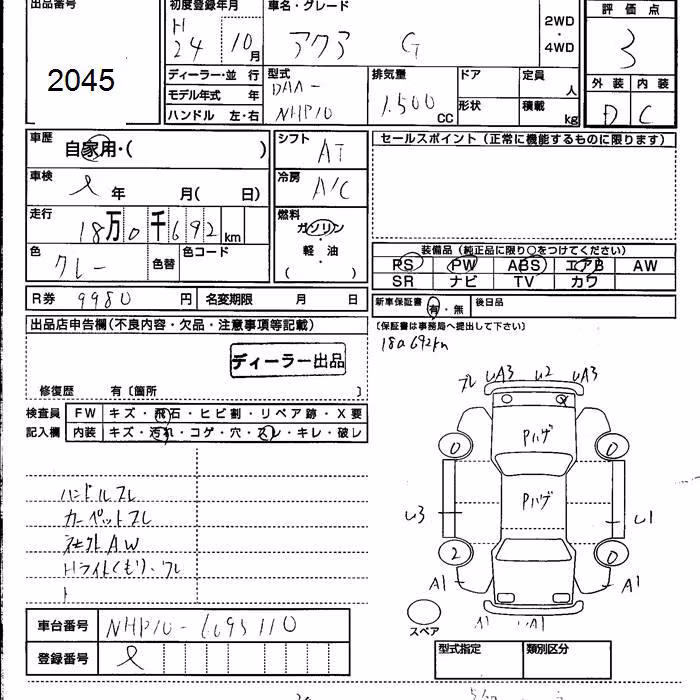 出品番号
2045
初度登録年月
H
24 10月
車名・グレード
アクア G
2WD
・
4WD
評価点
3
外装 内装
D C
ディーラー・並 行
モデル年式 年
ハンドル 左・右
型式
DAA-
NHP10
排気量
1.500 CC
ドア
形状
定員 人
積載 kg
車歴
自家用・( )
車検
年 月( 日)
走行
18万0千692 km
色
グレー
色替
色コード
シフト
AT
冷房
A/C
燃料
ガソリン
・
軽・油
( )
セールスポイント(正常に機能するものに限ります)
装備品(純正品に限り○をつけてください)
PS PW ABS エアB AW
SR ナビ TV カワ
R券 9980 円 名変期限 月 日
新車保証書 有・無 後日品
(保証書は事務局へ提出して下さい)
出品店申告欄(不良内容・欠品・注意事項等記載)
ディーラー出品
修復歴 有〔箇所 〕
検査員
記入欄
FW キズ・飛石・ヒビ割・リペア跡・X要
内装 キズ・汚れ・コゲ・穴・スレ・キレ・破レ
ハンドルスレ
カーペットスレ
社外AW
Hライトくもり・ワレ
U3
U2
UA3
Pハゲ
Pハゲ
0
0
2
0
U1
A1
A1
スペア
車台番号 NHP10-6095110
登録番号
型式指定 類別区分